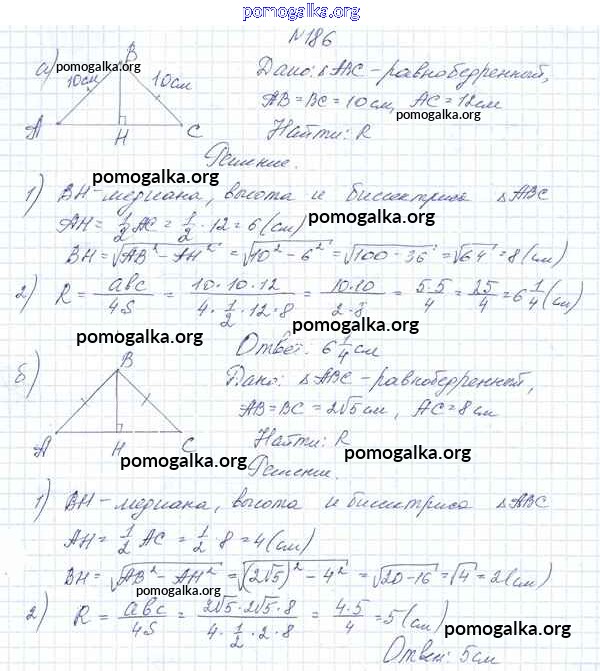 pomogalka.org
№186
а)
B
pomogalka.org
10см 10см
A H C
Дано: ΔABC - равнобедренный,
AB = BC = 10 см, AC = 12 см
pomogalka.org
Найти: R
Решение.
pomogalka.org
1) BH - медиана, высота и биссектриса ΔABC
AH = 1/2 AC = 1/2 · 12 = 6 (см)
pomogalka.org
BH = √(AB² - AH²) = √(10² - 6²) = √(100 - 36) = √64 = 8 (см)
2) R = abc/4S = (10 · 10 · 12)/(4 · 1/2 · 12 · 8) = (10 · 10)/(2 · 8) = (5 · 5)/4 = 25/4 = 6 1/4 (см)
pomogalka.org
pomogalka.org
Ответ: 6 1/4 см
б)
B
A H C
Дано: ΔABC - равнобедренный,
AB = BC = 2√5 см, AC = 8 см
Найти: R
pomogalka.org
pomogalka.org
Решение.
1) BH - медиана, высота и биссектриса ΔABC
AH = 1/2 AC = 1/2 · 8 = 4 (см)
BH = √(AB² - AH²) = √((2√5)² - 4²) = √(20 - 16) = √4 = 2 (см)
pomogalka.org
2) R = abc/4S = (2√5 · 2√5 · 8)/(4 · 1/2 · 2 · 8) = (4 · 5)/4 = 5 (см)
pomogalka.org
Ответ: 5 см